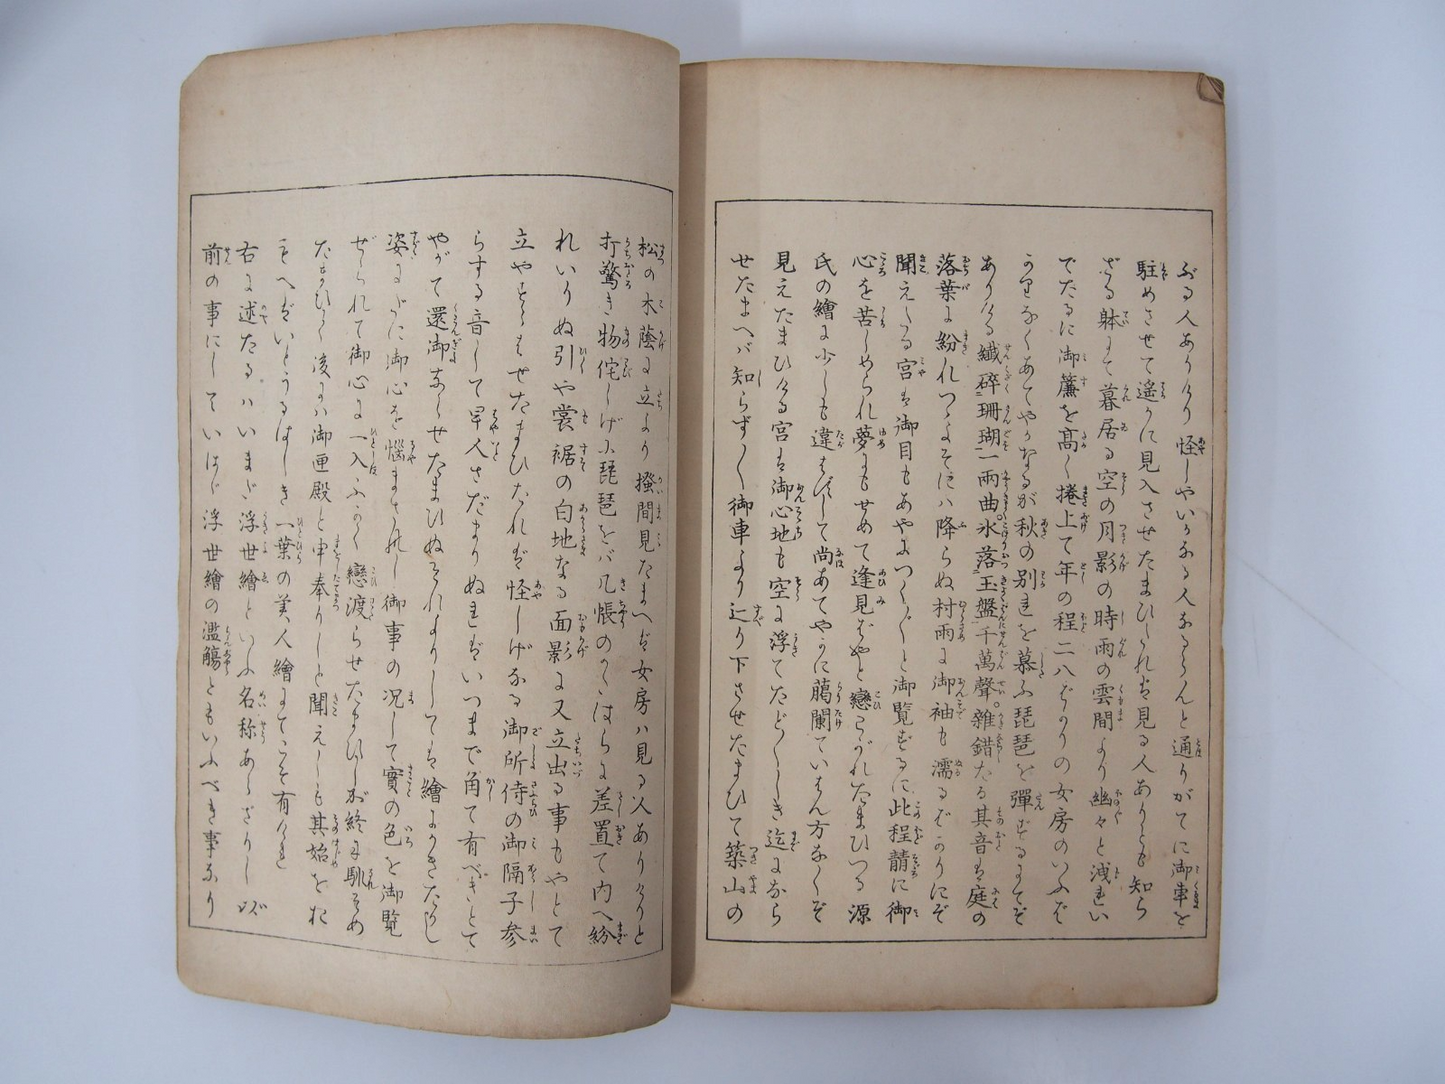 ぶる人ありけり怪しやいかなる人なるらんと通りがてに御車を
駐めさせて遙かに見入させたまひしれば見る人ありとも知ら
ざる躰にて暮居る空の月影の時雨の雲間より幽々と洩出い
でたるに御簾を高く捲上て年の程二八ばかりの女房のいふば
かりなくあてやかなるが秋の別れを慕ふ琵琶を彈ずるにてぞ
ありける纎碎珊瑚一兩曲。氷落玉盤千萬聲。雜錯たる其音は庭の
落葉に紛れつゝよそにハ降らぬ村雨に御袖も濡るばかりにぞ
聞えける宮は御目もあやにつく〴〵と御覧ずるに此程藺に御
心を苦しめられ夢にもせめて逢見ばやと戀こがれたまひつる源
氏の繪に少しも違はずして尚あてやかに﨟闌ていはん方なくぞ
見えたまひける宮は御心地も空に浮てたど〳〵しき迄になら
せたまへバ知らず〳〵御車より辷り下させたまひて築山の
松の木蔭に立より掻間見たまへば女房ハ見る人ありけりと
打驚き物侘しげに琵琶をバ几帳のかたはらに差置て内へ紛
れいりぬ引や裳裾の白地なる面影に又立出る事もやとて
立やすらはせたまひたれば怪しげなる御所侍の御隔子参
らする音して早人さだまりぬればいつまで角て有べきとて
やがて還御なしせたまひぬそれよりしても繪にかきたりし
姿にだに御心を惱まされし御事の况して實の色を御覧
ぜられて御心に一入ふかく戀渡らせたまひしが終に馴そめ
たまひし後にハ御匣殿と申奉りしと聞えしも其始をお
もへばいとうるはしき一葉の美人繪にてこそ有けれ
右に述たるハいまだ浮世繪といふ名称あらざりし以
前の事にしていはゞ浮世繪の濫觴ともいふべき事なり